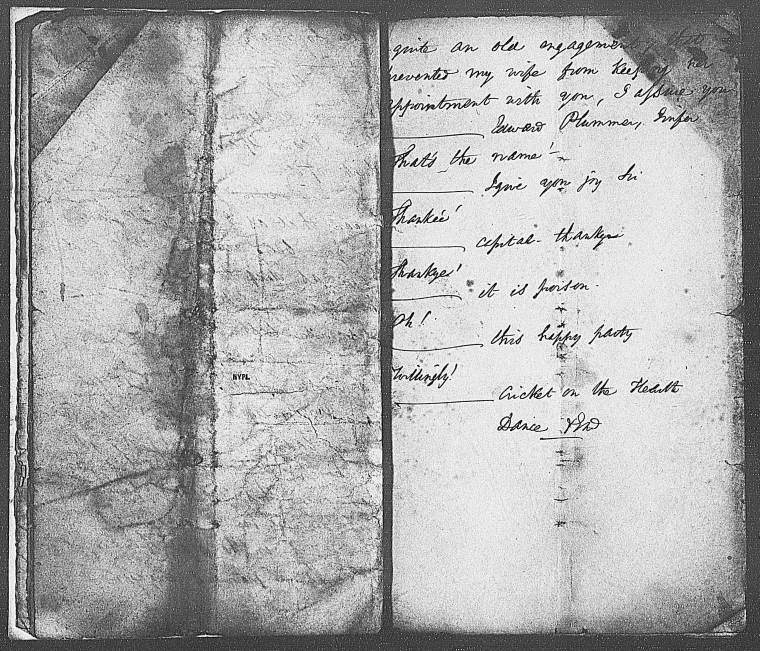 NYPL
quite an old engagement, that
prevented my wife from keeping her
appointment with you, I assure you
Edward Plummer,
That's the name!
I give you joy Sir
Thankee!
capital - thankye
Thankyee!
it is poison.
Oh!
this happy party
Willingly!
Cricket on the Hearth
Dance & End